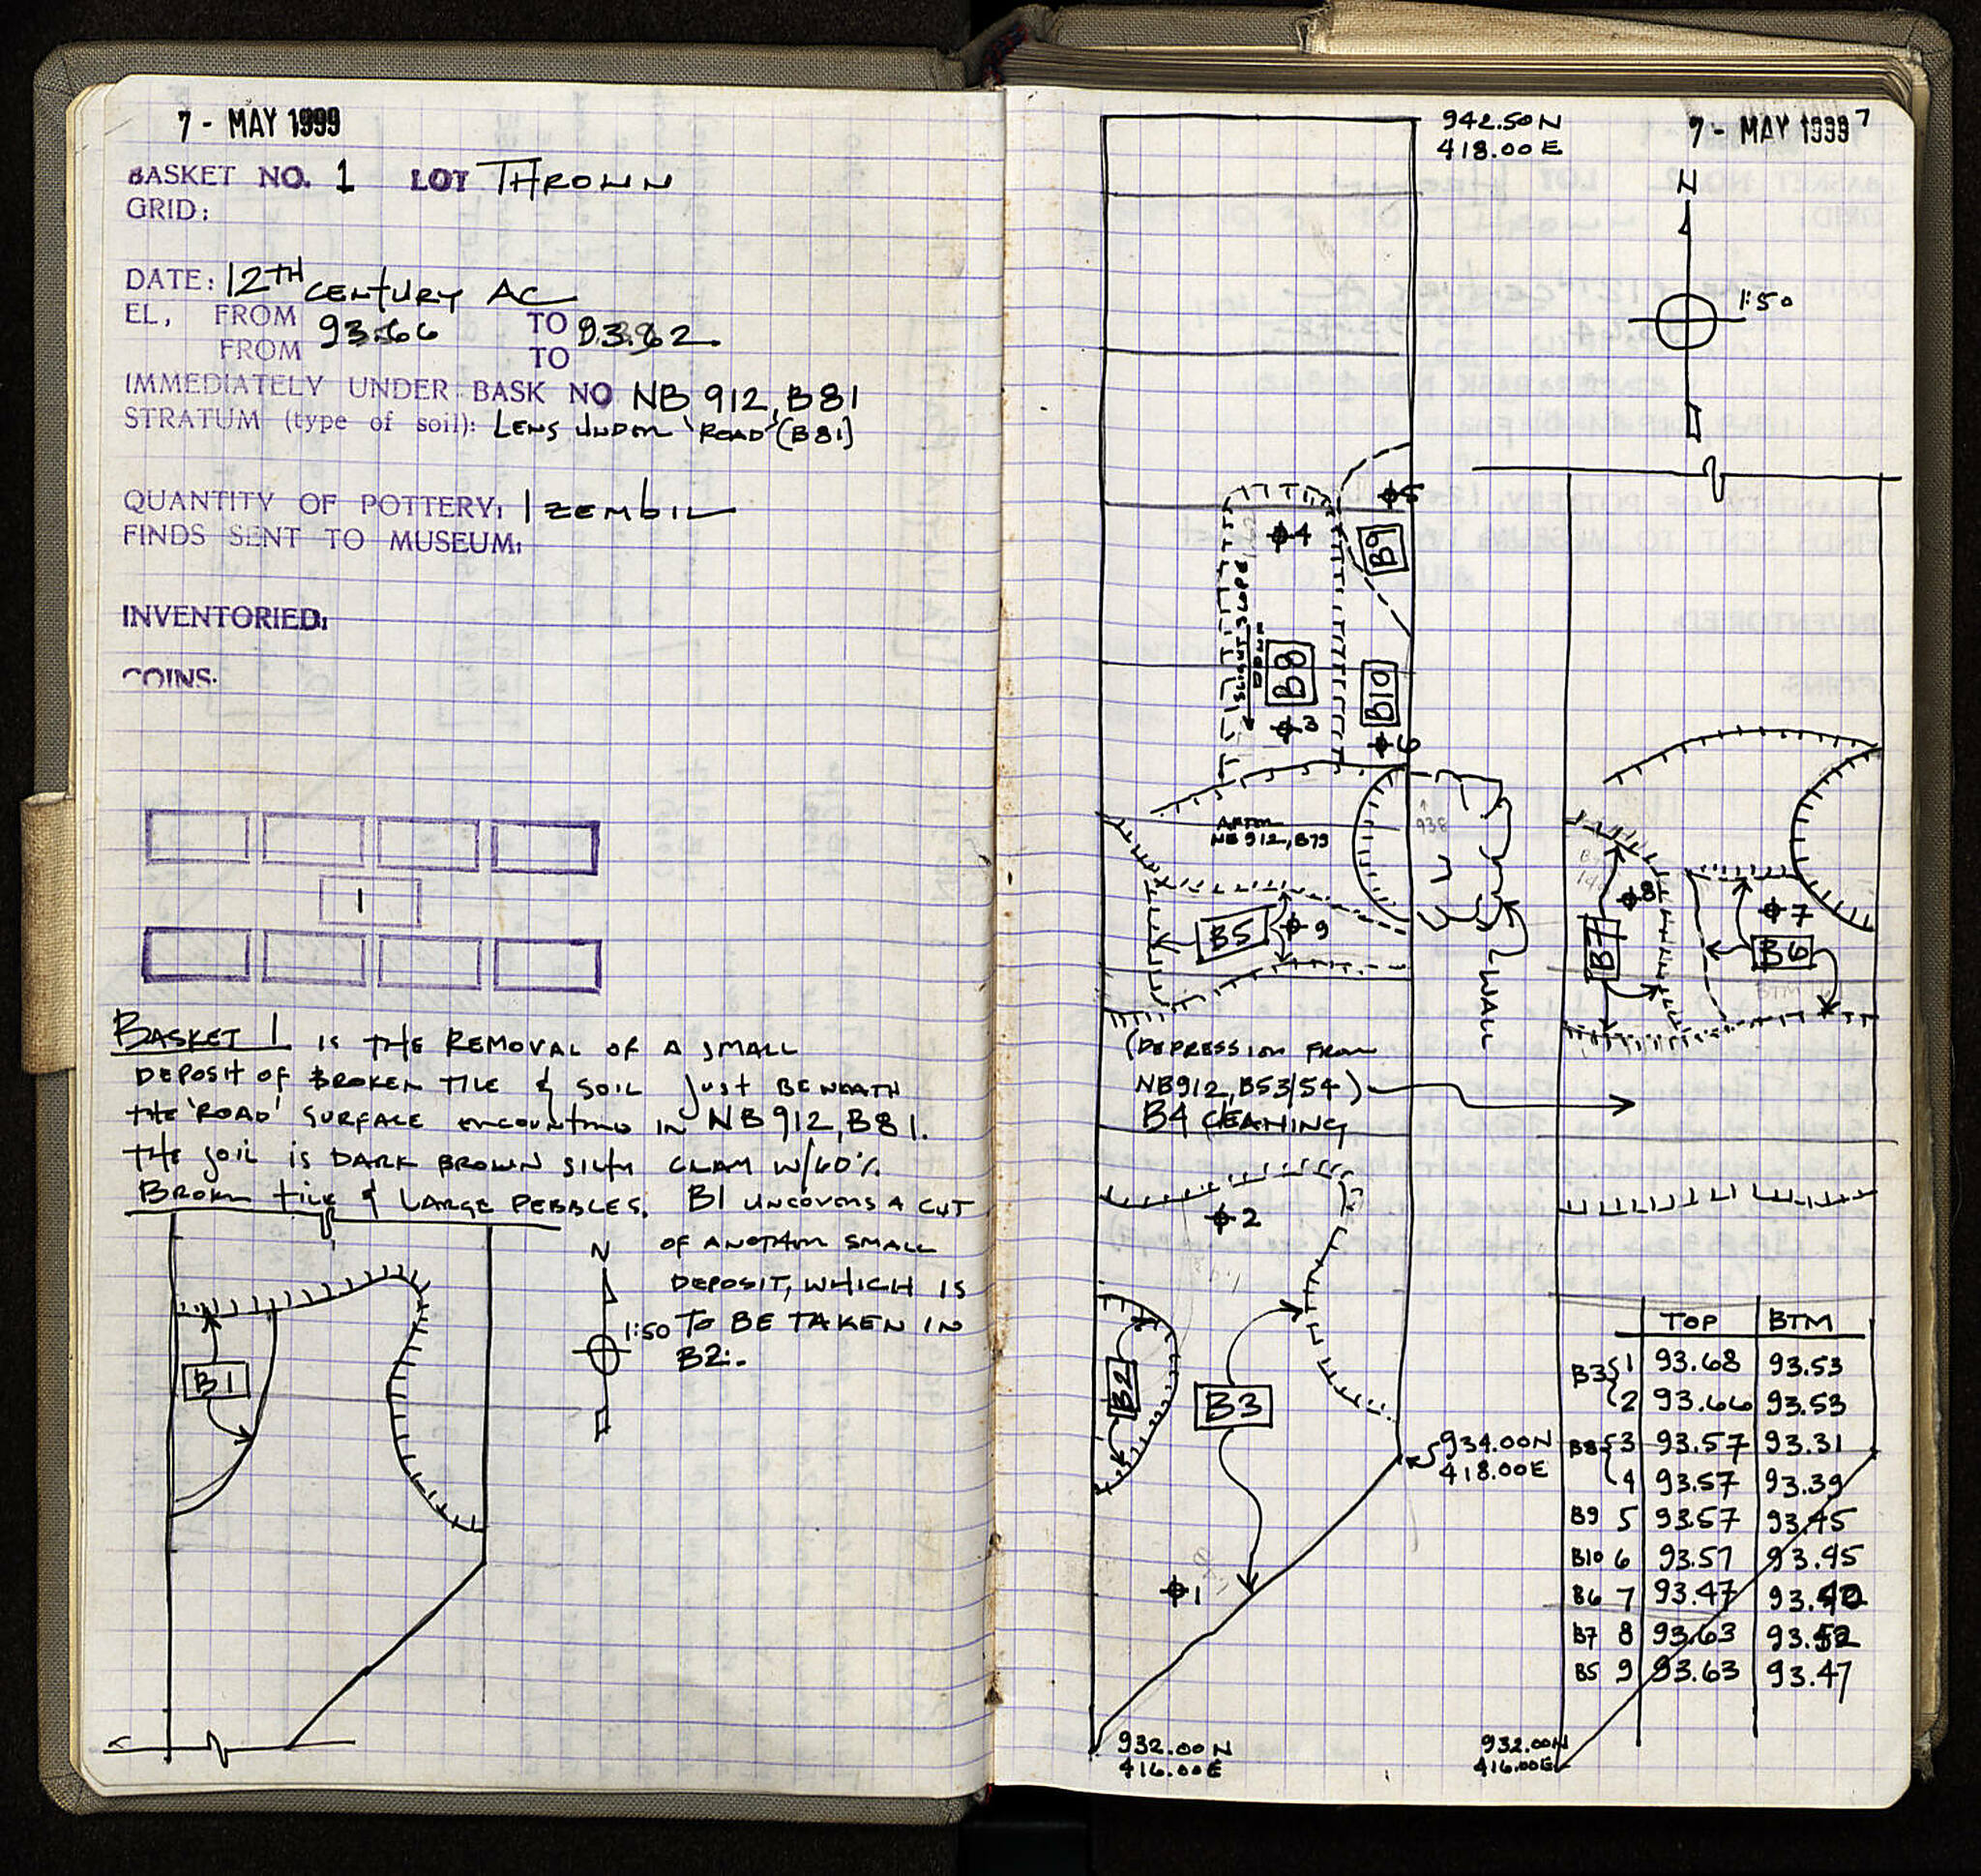 7 - MAY 1999
BASKET NO. 1 LOT THROWN
GRID:
DATE: 12TH CENTURY AC
EL, FROM 93.66 TO
FROM TO
IMMEDIATELY UNDER BASK NO NB 912, B81
STRATUM (type of soil): LENS UNDER 'ROAD' (B81)
QUANTITY OF POTTERY: 1 ZEMBIL
FINDS SENT TO MUSEUM:
INVENTORIED:
COINS:
1
BASKET 1 IS THE REMOVAL OF A SMALL
DEPOSIT OF BROKEN TILE & SOIL JUST BENEATH
THE 'ROAD' SURFACE ENCOUNTERED IN NB 912, B81.
THE SOIL IS DARK BROWN SILTY CLAM W/60%
BROKEN TILE & LARGE PEBBLES. B1 UNCOVERS A CUT
OF ANOTHER SMALL
DEPOSIT, WHICH IS
TO BE TAKEN IN
B2.
N
1:50
B1
7 - MAY 1999 7
942.50 N
418.00 E
N
1:50
5
4
B9
SLOPE
B8
B10
3
6
AFTER
NB 912, B79
938
B5
9
WALL
8
7
B7
B6
BTM
(DEPRESSION FROM
NB912, B53/54)
B4 CLEANING
2
B2
B3
934.00N
418.00E
1
932.00N
416.00E
932.00N
416.00E
TOP BTM
B3 1 93.68 93.53
2 93.66 93.53
B8 3 93.57 93.31
4 93.57 93.39
B9 5 93.57 93.45
B10 6 93.57 93.45
B6 7 93.47 93.40
B7 8 93.63 93.52
B5 9 93.63 93.47